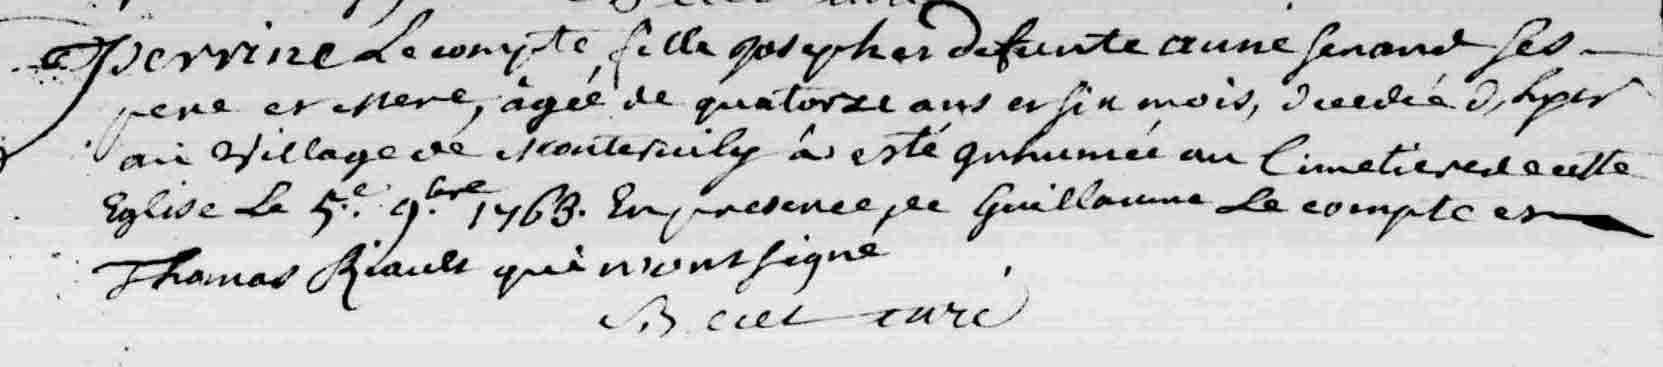 Perrine Le compte, fille joseph et defunte anne Gerard ses
pere et mere, àgée de quatorze ans et six mois, decedée d'hyer
au village de Monteruily à esté inhumée au Cimetiere de cette
Eglise Le 5.e 9.bre 1763. En presence de Guillaume Le compte et
Thomas Riault qui n'ont signé
curé